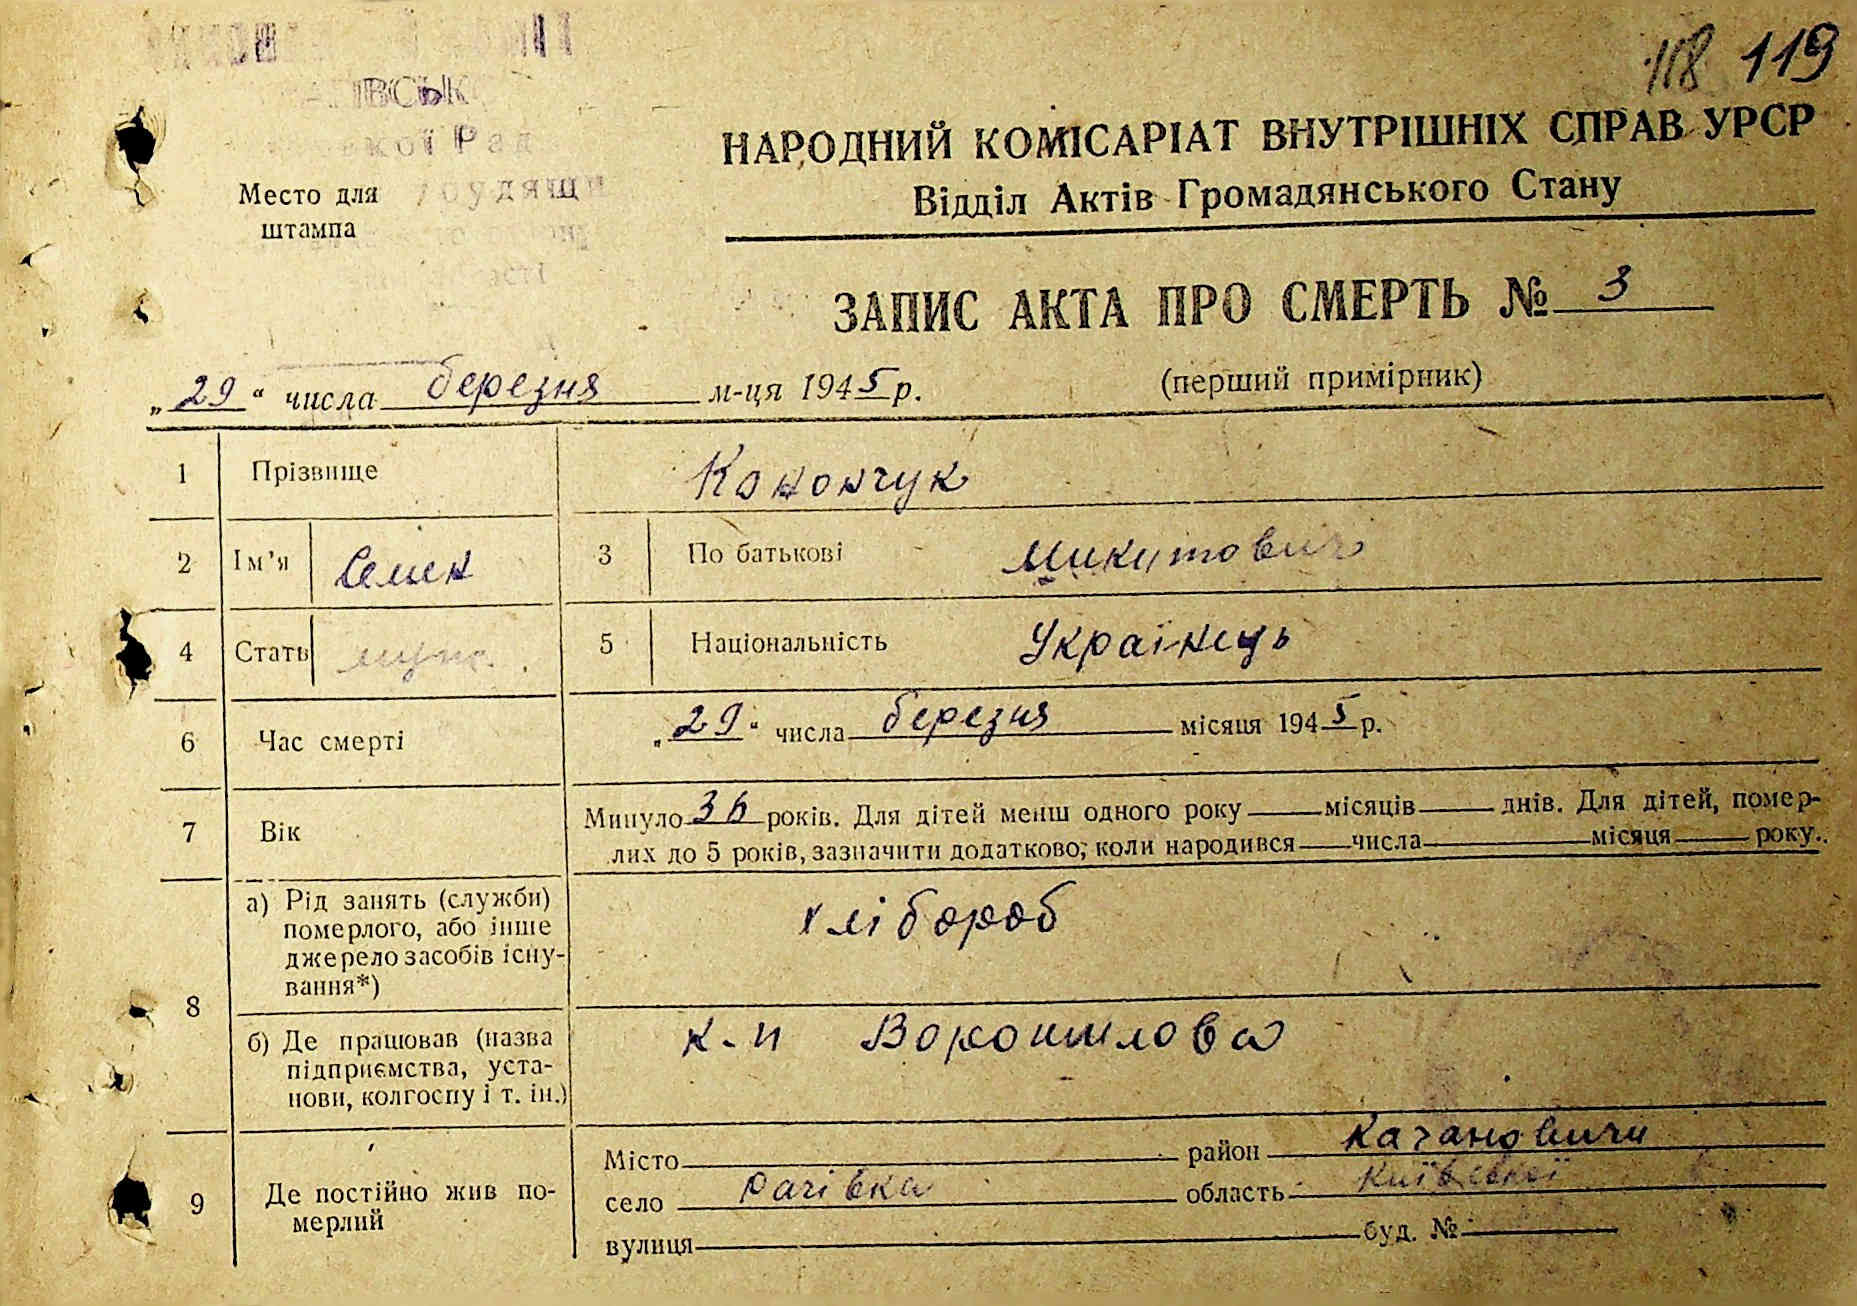 118 119
НАРОДНИЙ КОМІСАРІАТ ВНУТРІШНІХ СПРАВ УРСР
Відділ Актів Громадянського Стану
Место для
штампа
ЗАПИС АКТА ПРО СМЕРТЬ № 3
„29“ числа березня м-ця 1945 р.
(перший примірник)
1 Прізвище Конончук
2 Ім'я Семен 3 По батькові Микитович
4 Стать муж. 5 Національність Українець
6 Час смерті „29“ числа березня місяця 1945 р.
7 Вік Минуло 36 років. Для дітей менш одного року місяців днів. Для дітей, помер-
лих до 5 років, зазначити додатково, коли народився числа місяця року.
8 а) Рід занять (служби)
померлого, або інше
джерело засобів існу-
вання*)
хлібороб
б) Де працював (назва
підприємства, уста-
нови, колгоспу і т. ін.)
к-п Ворошилова
9 Де постійно жив по-
мерлий
Місто район Кагановичи
село Рагівка область Київської
вулиця буд. №